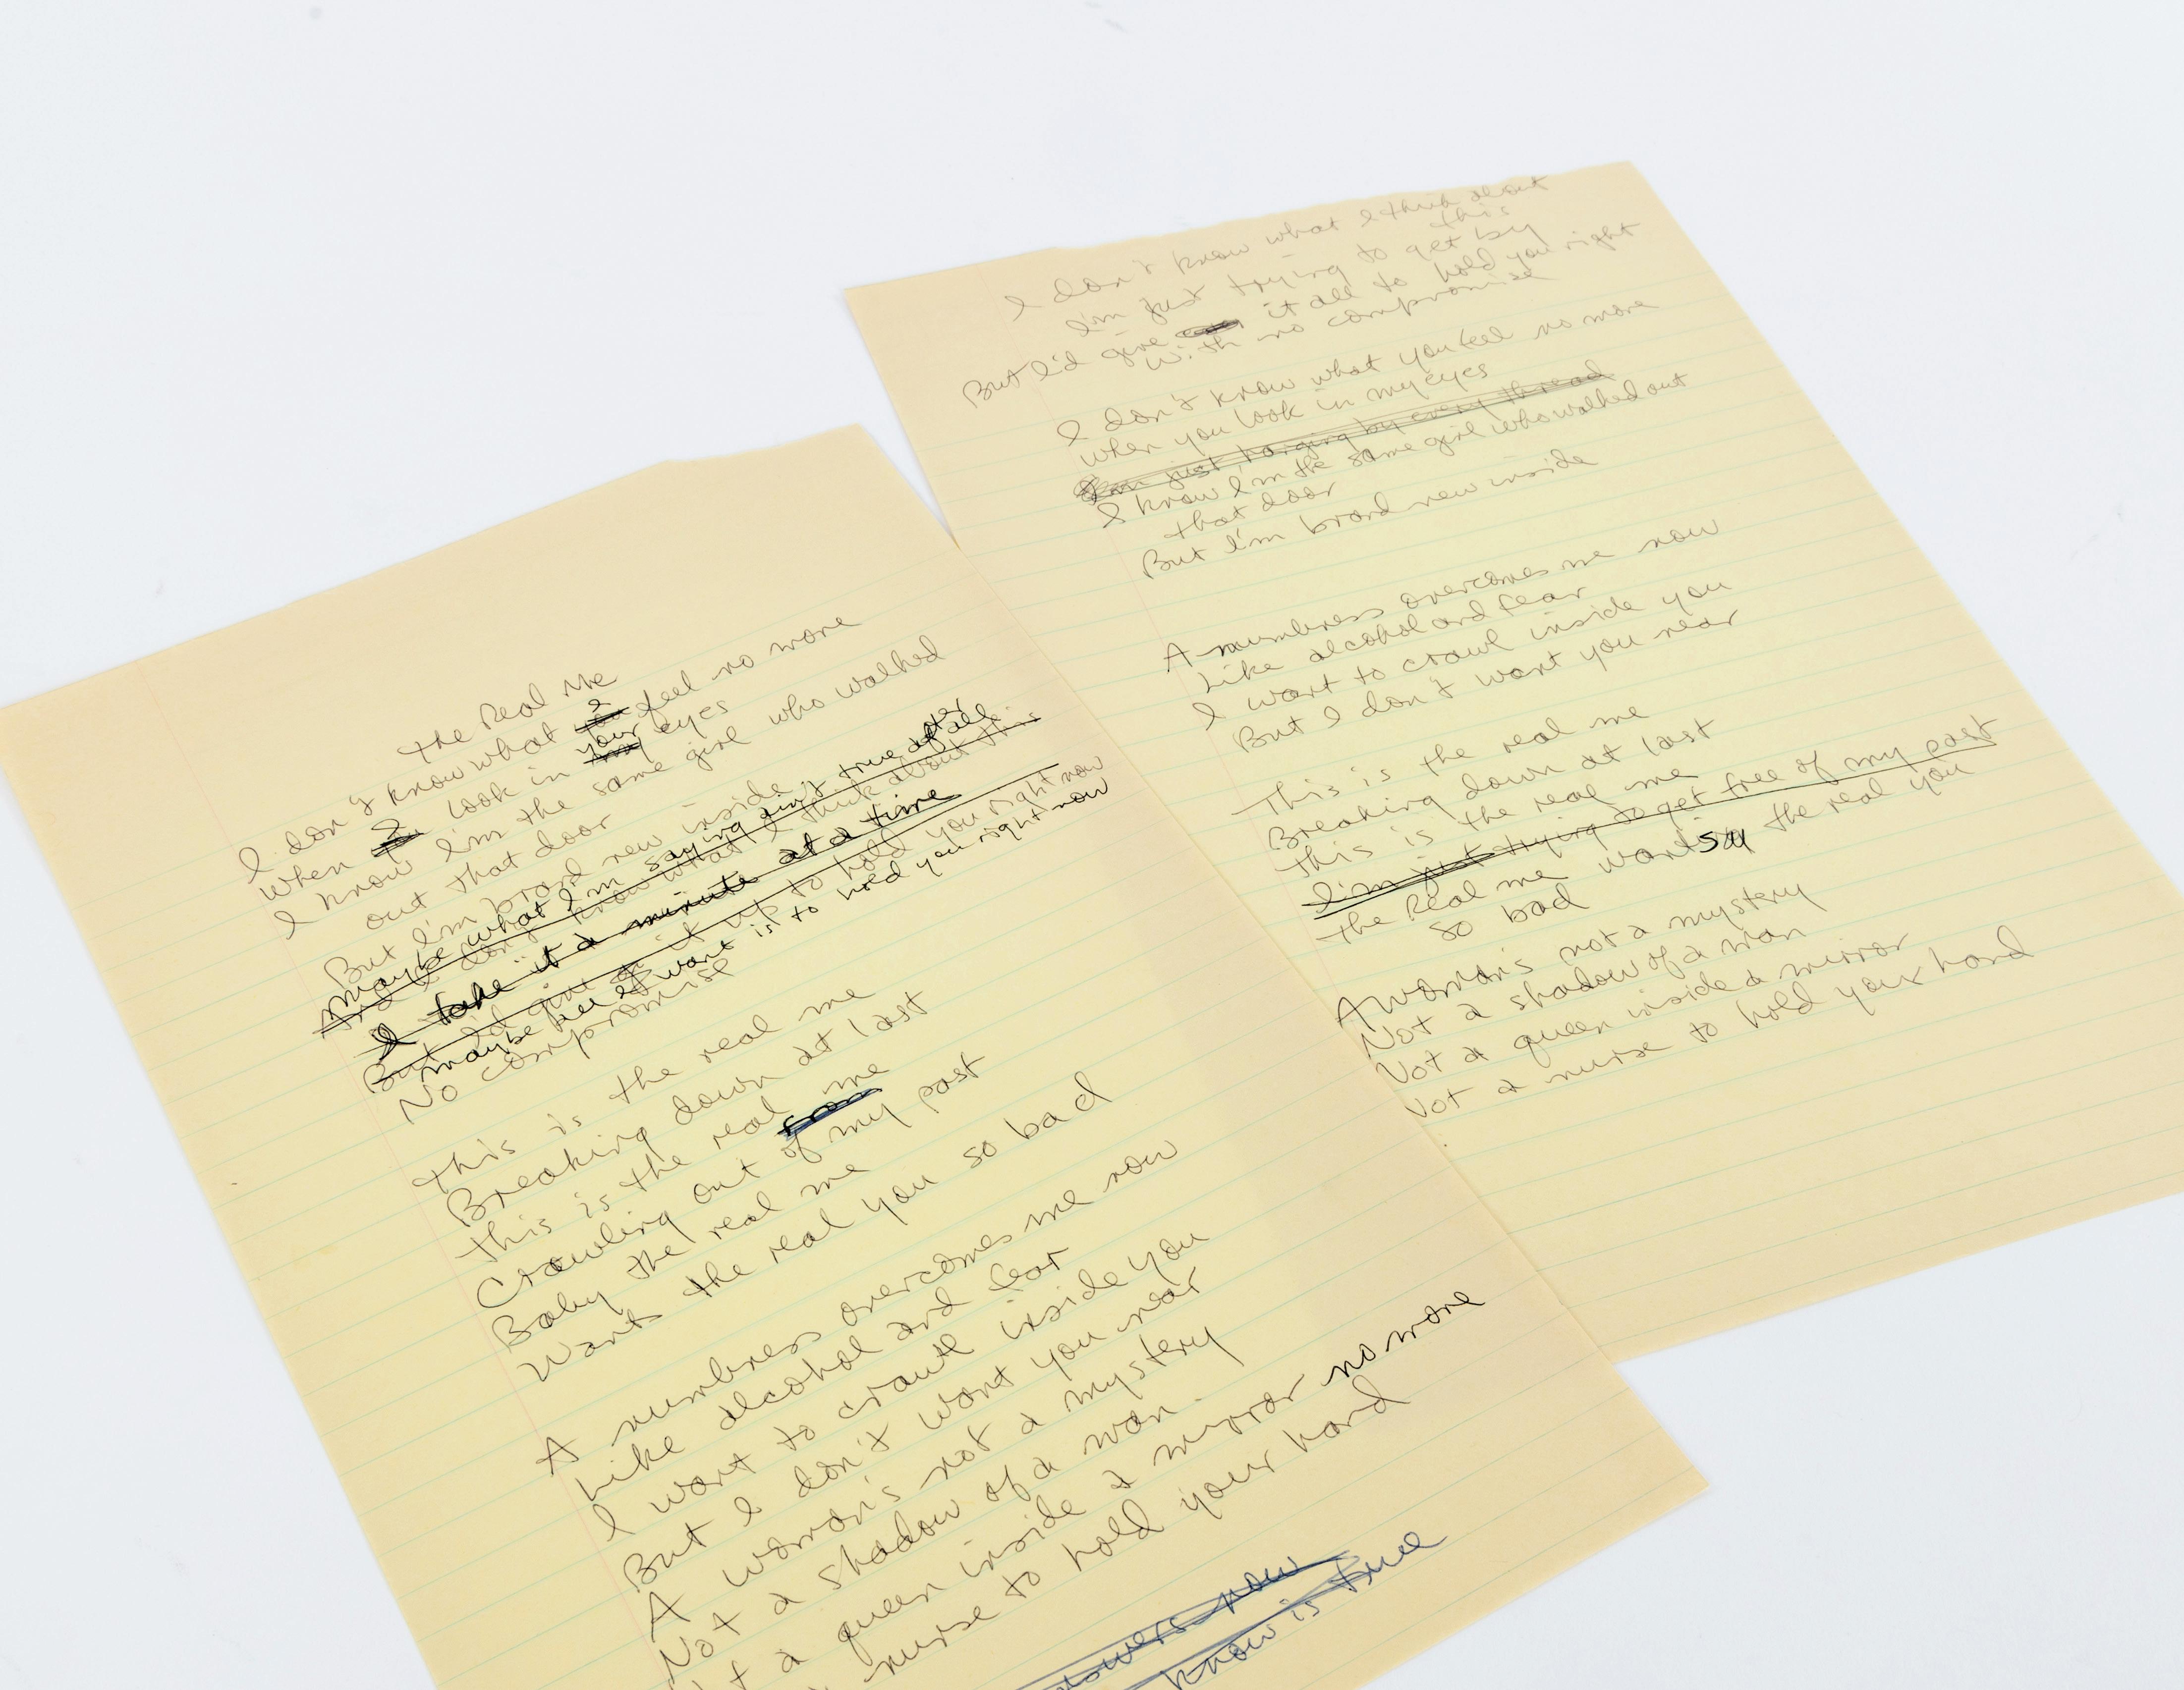 The Real Me
I don't know what I feel no more
When I look in your eyes
I know I'm the same girl who walked
out that door
But I'm brand new inside
maybe what I'm saying ain't true after all
And I don't know what I think about this
I take it a minute at a time
But I'd give it up to hold you right now
maybe all I want is to hold you right now
No compromise
This is the real me
Breaking down at last
This is the real me
from
Crawling out of my past
Baby the real me
Wants the real you so bad
A numbness overcomes me now
Like alcohol and fear
I want to crawl inside you
But I don't want you near
A woman's not a mystery
Not a shadow of a man.
a queen inside a mirror no more
nurse to hold your hand
now
know is true
I don't know what I think about
this
I'm just trying to get by
But I'd give it all to hold you right
With no compromise
I don't know what you feel no more
When you look in my eyes
I'm just hanging by every thread
I know I'm the same girl who walked out
that door
But I'm brand new inside
A numbness overcomes me now
Like alcohol and fear
I want to crawl inside you
But I don't want you near
This is the real me
Breaking down at last
This is the real me
I'm just trying to get free of my past
The Real me wants the real you
so bad
A woman's not a mystery
Not a shadow of a man
Not a queen inside a mirror
Not a nurse to hold your hand